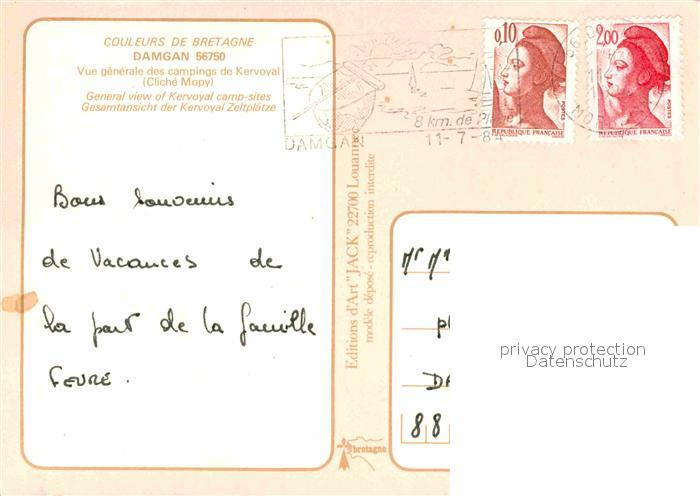 COULEURS DE BRETAGNE
DAMGAN 56750
Vue générale des campings de Kervoyal
(Cliché Mopy)
General view of Kervoyal camp-sites
Gesamtansicht der Kervoyal Zeltplätze
DAMGAN
8 km. de Plage
11-7-84
0,10
POSTES
REPUBLIQUE FRANÇAISE
2,00
POSTES
REPUBLIQUE FRANÇAISE
Bons Souvenirs
de Vacances de
la part de la famille
FEVRE.
Editions d'Art "JACK" 22700 Louannec
modèle déposé - reproduction interdite
bretagne
Mr
88
privacy protection
Datenschutz